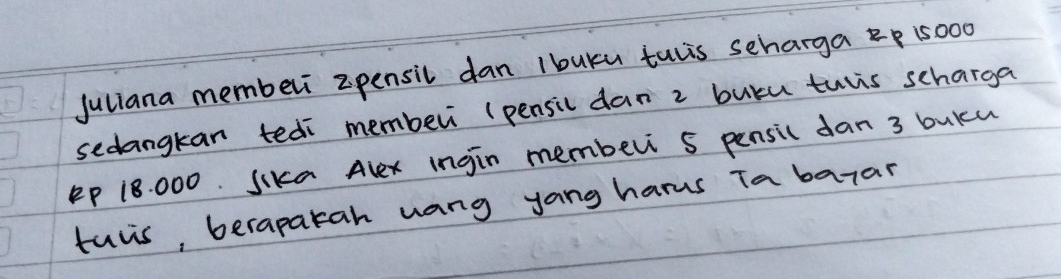 Juliana membeli 2 pensil dan 1 buku tulis seharga Rp 15000
sedangkan tedi membeli 1 pensil dan 2 buku tulis seharga
RP 18.000. Jika Alex ingin membeli 5 pensil dan 3 buku
tulis, berapakah uang yang harus Ia bayar